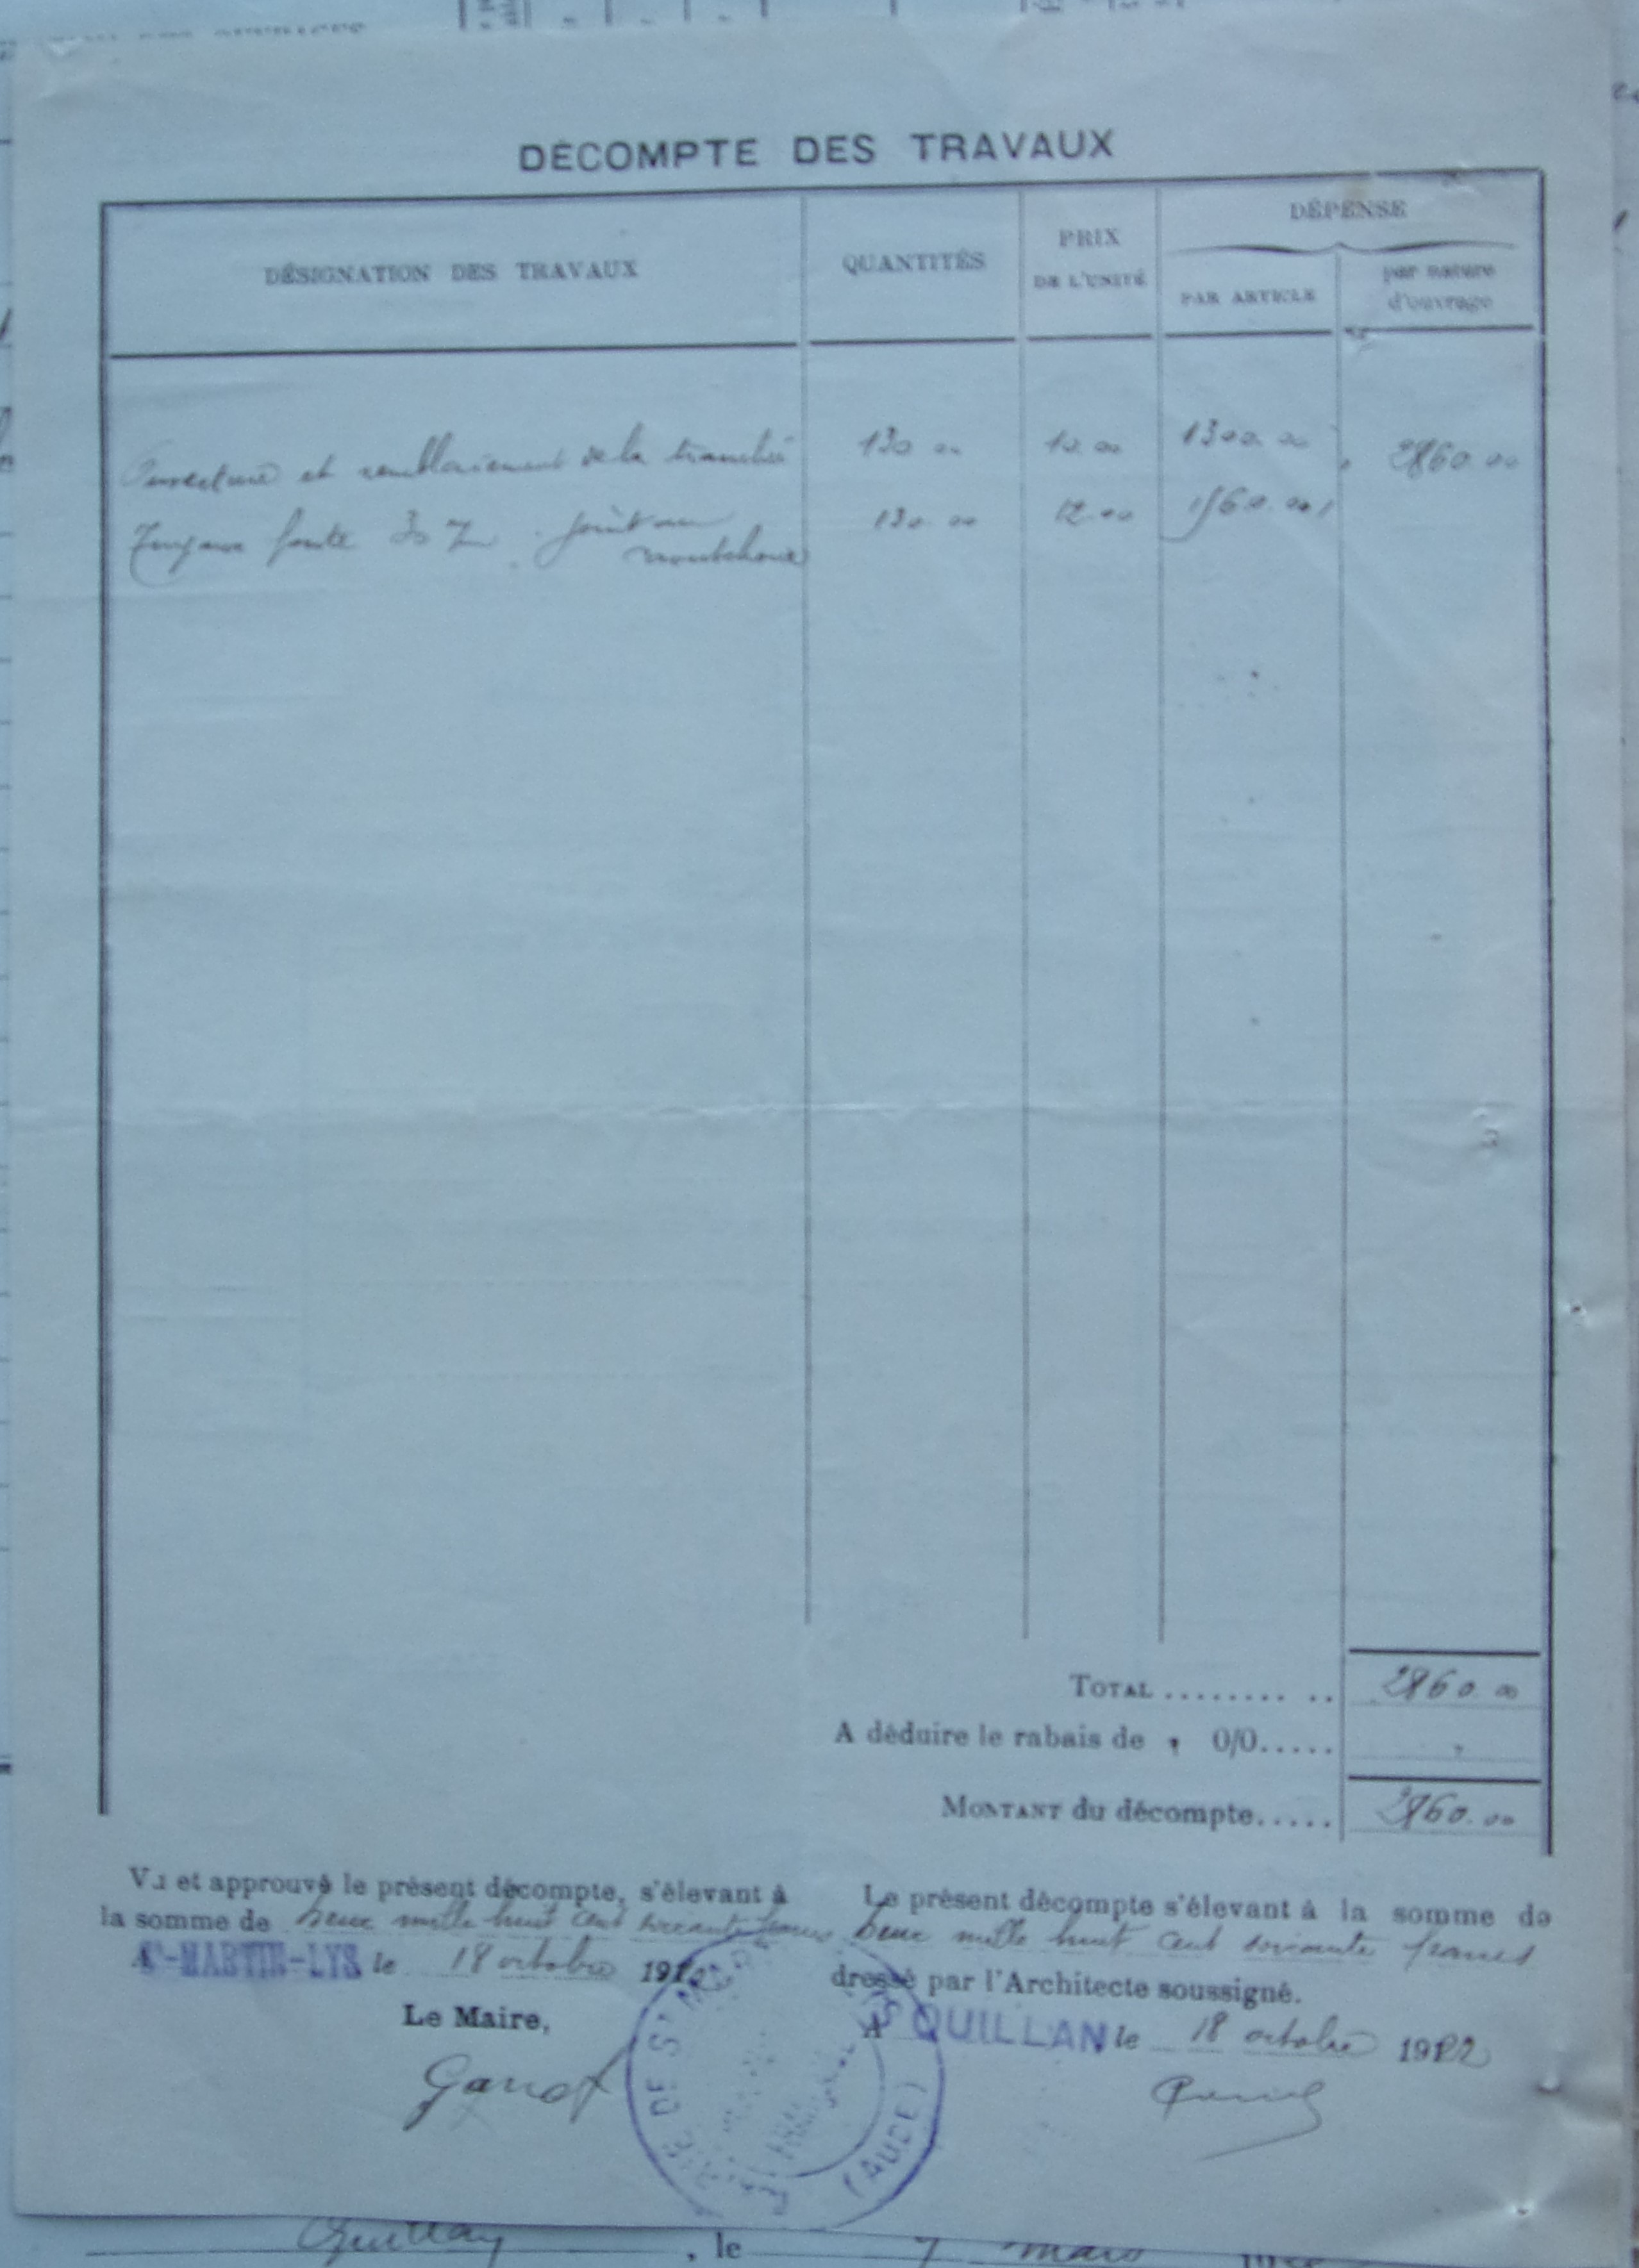 DÉCOMPTE DES TRAVAUX
DÉSIGNATION DES TRAVAUX
QUANTITÉS
PRIX
DE L'UNITÉ
DÉPENSE
PAR ARTICLE
par nature
d'ouvrage
Ouverture et remblaiement de la tranchée 130.00 10.00 1300.00 2860.00
Tuyaux fonte joint au 130.00 12.00 1560.00
caoutchouc
TOTAL ........ .. 2860.00
A déduire le rabais de " 0/0..... "
MONTANT du décompte..... 2860.00
Vu et approuvé le présent décompte, s'élevant à
la somme de Deux mille huit cent soixante francs
St-MARTIN-LYS le 18 octobre 1922
Le Maire,
Le présent décompte s'élevant à la somme de
Deux mille huit cent soixante francs
dressé par l'Architecte soussigné.
A QUILLAN le 18 octobre 1922
DE St MARTIN LYS
(AUDE)
Quillan, le 7 mars